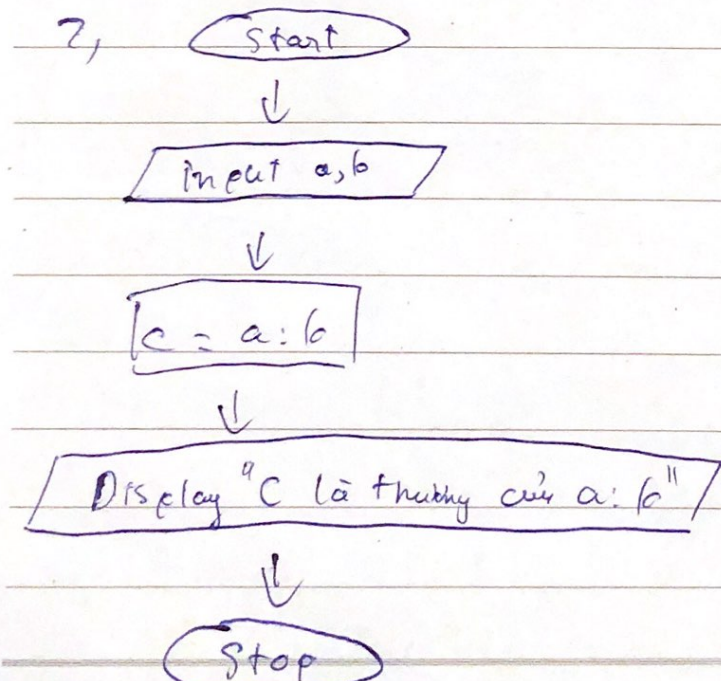 2,
Start
input a,b
c = a : b
Display "C là thương của a : b"
Stop